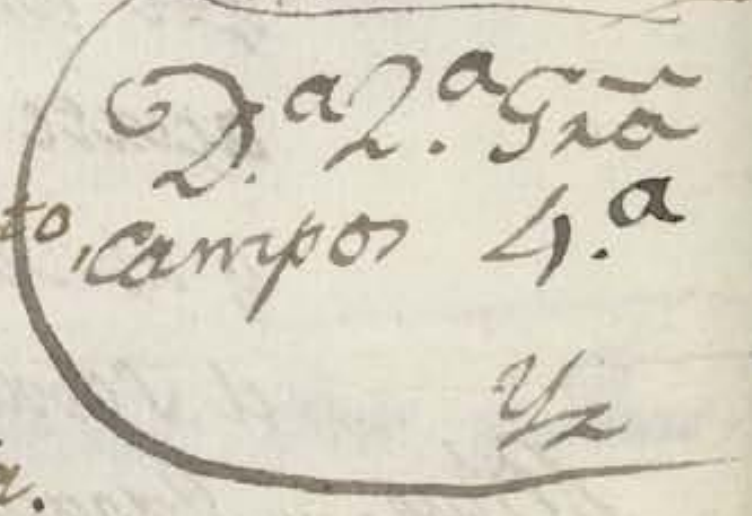 D.ª 2.ª Grã
to, campos 4.ª
Yz
a.